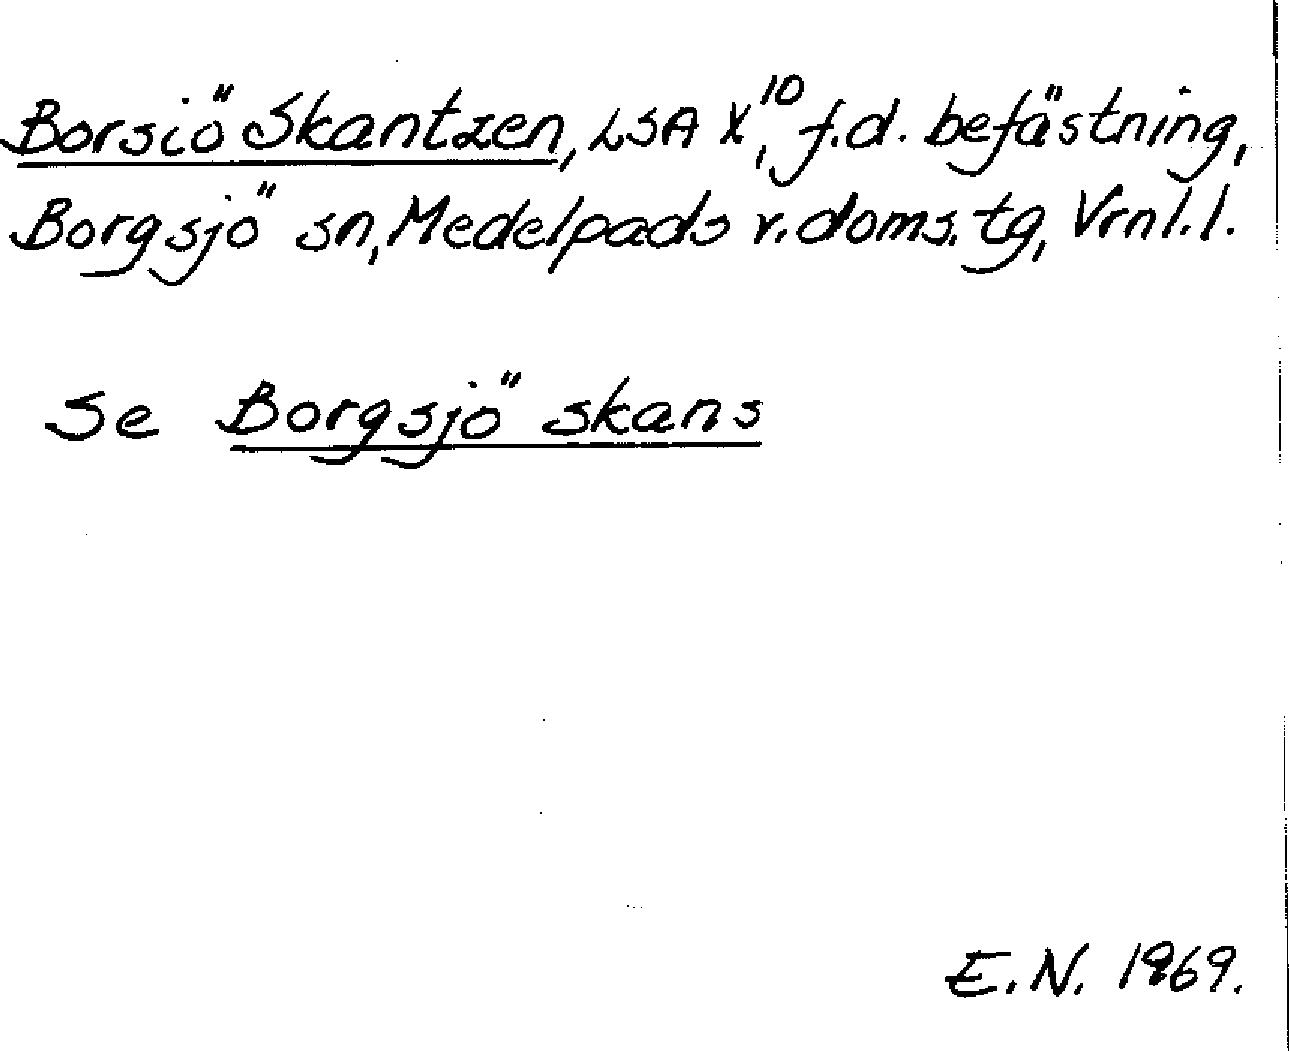 Borsiö Skantzen, LSA X¹⁰, f.d. befästning,
Borgsjö sn, Medelpads v. doms. tg, Vrnl. l.
Se Borgsjö skans
E.N. 1969.